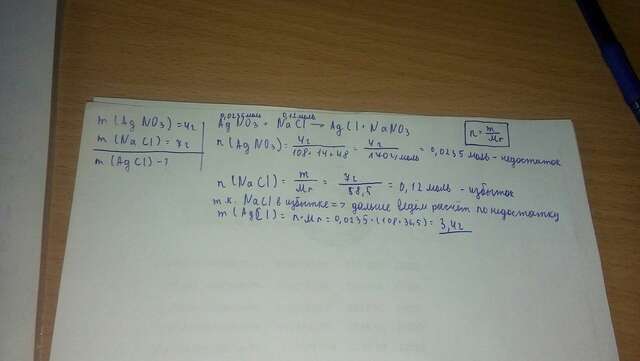 m (AgNO₃) = 4г
m (NaCl) = 7г
m (AgCl) - ?
0,0235 моль 0,12 моль
AgNO₃ + NaCl → AgCl + NaNO₃
n = m/Mr
n (AgNO₃) = 4г/108+14+48 = 4г/170г/моль = 0,0235 моль - недостаток
n (NaCl) = m/Mr = 7г/58,5 = 0,12 моль - избыток
т.к. NaCl в избытке => дальше ведём расчёт по недостатку
m (AgCl) = n·Mr = 0,0235·(108+36,5) = 3,4г